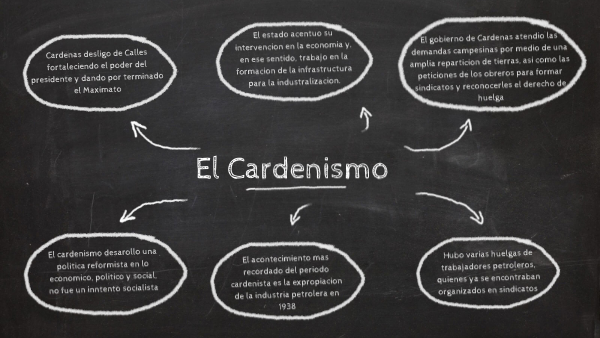 Cardenas desligo de Calles
fortaleciendo el poder del
presidente y dando por terminado
el Maximato
El estado acentuo su
intervencion en la economia y,
en ese sentido, trabajo en la
formacion de la infrastructura
para la industralizacion.
El gobierno de Cardenas atendio las
demandas campesinas por medio de una
amplia reparticion de tierras, asi como las
peticiones de los obreros para formar
sindicatos y reconocerles el derecho de
huelga
El Cardenismo
El cardenismo desarollo una
politica reformista en lo
economico, politico y social,
no fue un inntento socialista
El acontecimiento mas
recordado del periodo
cardenista es la expropiacion
de la industria petrolera en
1938
Hubo varias huelgas de
trabajadores petroleros,
quienes ya se encontraban
organizados en sindicatos